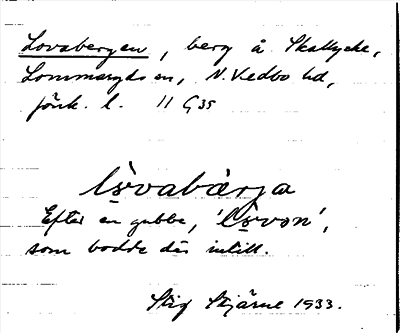 Lovabergen, berg å Skallycke,
Lommaryds sn, N. Vedbo hd,
jönk. l. 11 G 35
lòvabærja
Efter en gubbe, 'lòvən',
som bodde där intill.
Stig Stjärne 1933.